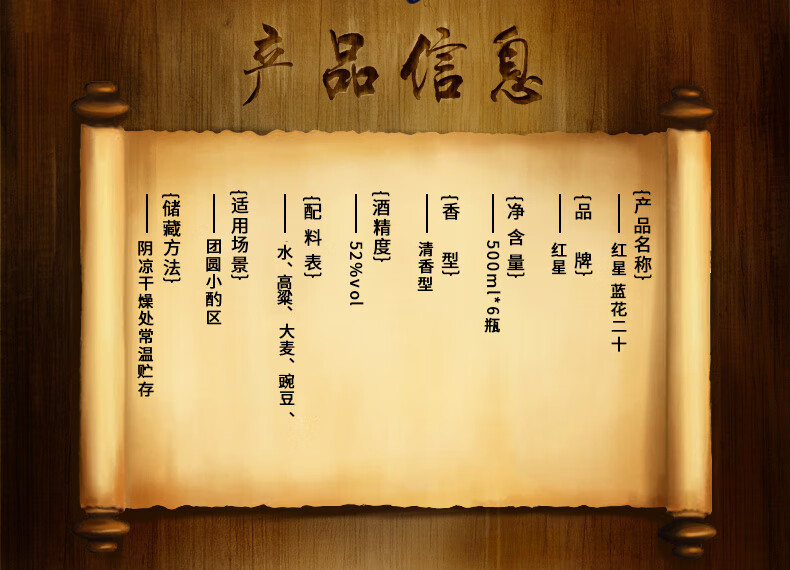 产品信息
{产品名称}
红星 蓝花二十
{品 牌}
红星
{净含量}
500ml*6瓶
{香 型}
清香型
{酒精度}
52%vol
{配料表}
水、高粱、大麦、豌豆、
{适用场景}
团圆小酌区
{储藏方法}
阴凉干燥处常温贮存